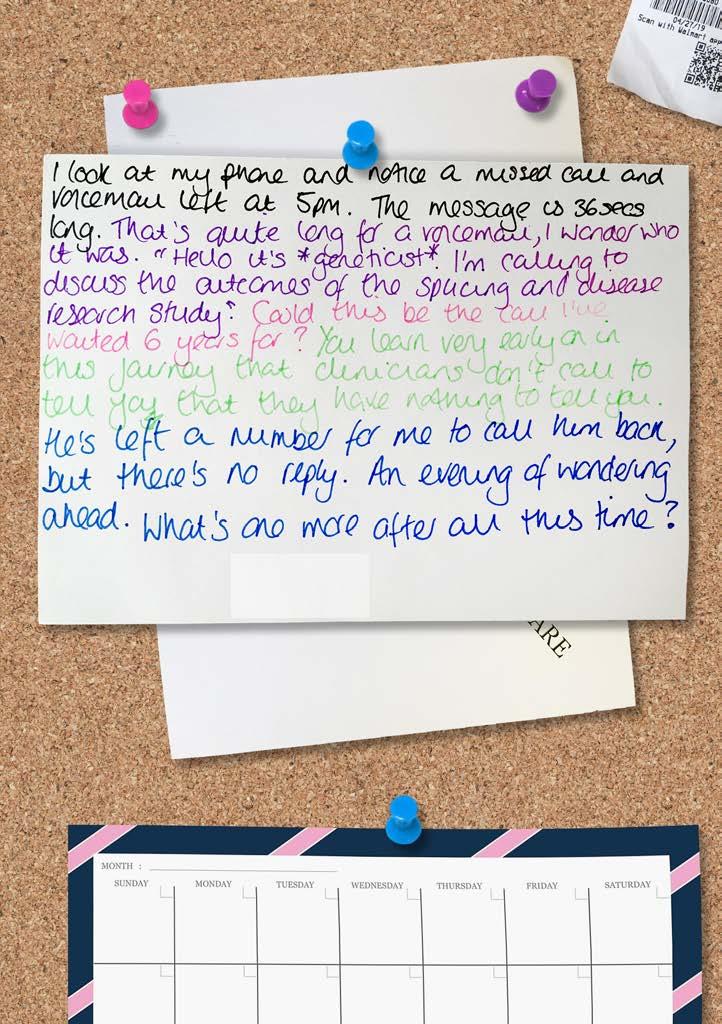 04/27/19
Scan with Walmart app
I look at my phone and notice a missed call and
voicemail left at 5pm. The message is 36secs
long. That's quite long for a voicemail, I wonder who
it was. "Hello it's *geneticist*. I'm calling to
discuss the outcomes of the splicing and disease
research study". Could this be the call I've
waited 6 years for? You learn very early on in
this journey that clinicians don't call to
tell you that they have nothing to tell you.
He's left a number for me to call him back,
but there's no reply. An evening of wondering
ahead. What's one more after all this time?
ARE
MONTH :
SUNDAY MONDAY TUESDAY WEDNESDAY THURSDAY FRIDAY SATURDAY